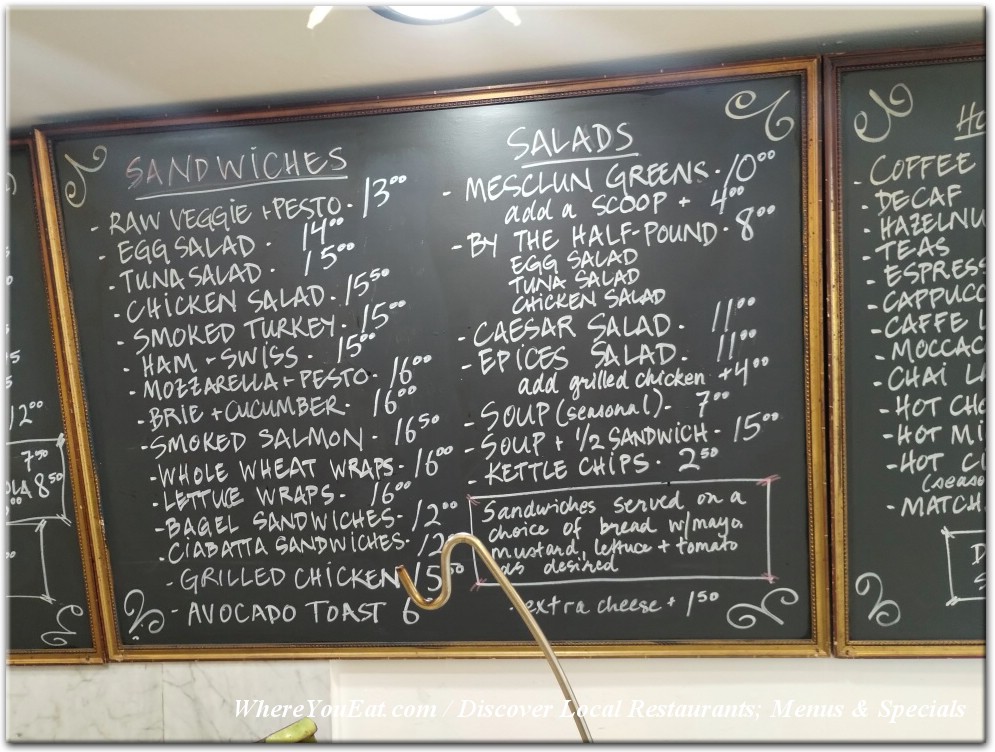 SANDWICHES
- RAW VEGGIE + PESTO - 13⁰⁰
- EGG SALAD - 14⁰⁰
- TUNA SALAD - 15⁰⁰
- CHICKEN SALAD - 15⁵⁰
- SMOKED TURKEY - 15⁰⁰
- HAM + SWISS - 15⁰⁰
- MOZZARELLA + PESTO - 16⁰⁰
- BRIE + CUCUMBER - 16⁰⁰
- SMOKED SALMON - 16⁵⁰
- WHOLE WHEAT WRAPS - 16⁰⁰
- LETTUCE WRAPS - 16⁰⁰
- BAGEL SANDWICHES - 12⁰⁰
- CIABATTA SANDWICHES - 12
- GRILLED CHICKEN 15⁵⁰
- AVOCADO TOAST 6
SALADS
- MESCLUN GREENS - 10⁰⁰
add a SCOOP + 4⁰⁰
- BY THE HALF-POUND - 8⁰⁰
EGG SALAD
TUNA SALAD
CHICKEN SALAD
- CAESAR SALAD - 11⁰⁰
- EPICES SALAD - 11⁰⁰
add grilled chicken + 4⁰⁰
- SOUP (seasonal) - 7⁰⁰
- SOUP + 1/2 SANDWICH - 15⁰⁰
- KETTLE CHIPS - 2⁵⁰
Sandwiches served on a
choice of bread w/mayo,
mustard, lettuce + tomato
as desired
- extra cheese + 1⁵⁰
- COFFEE
- DECAF
- HAZELNU
- TEAS
- ESPRESS
- CAPPUCC
- CAFFE L
- MOCCAC
- CHAI LA
- HOT CHO
- HOT MI
- HOT C
(seaso
- MATCH
12⁰⁰
7⁵⁰
OLA 8⁵⁰
WhereYouEat.com / Discover Local Restaurants; Menus & Specials